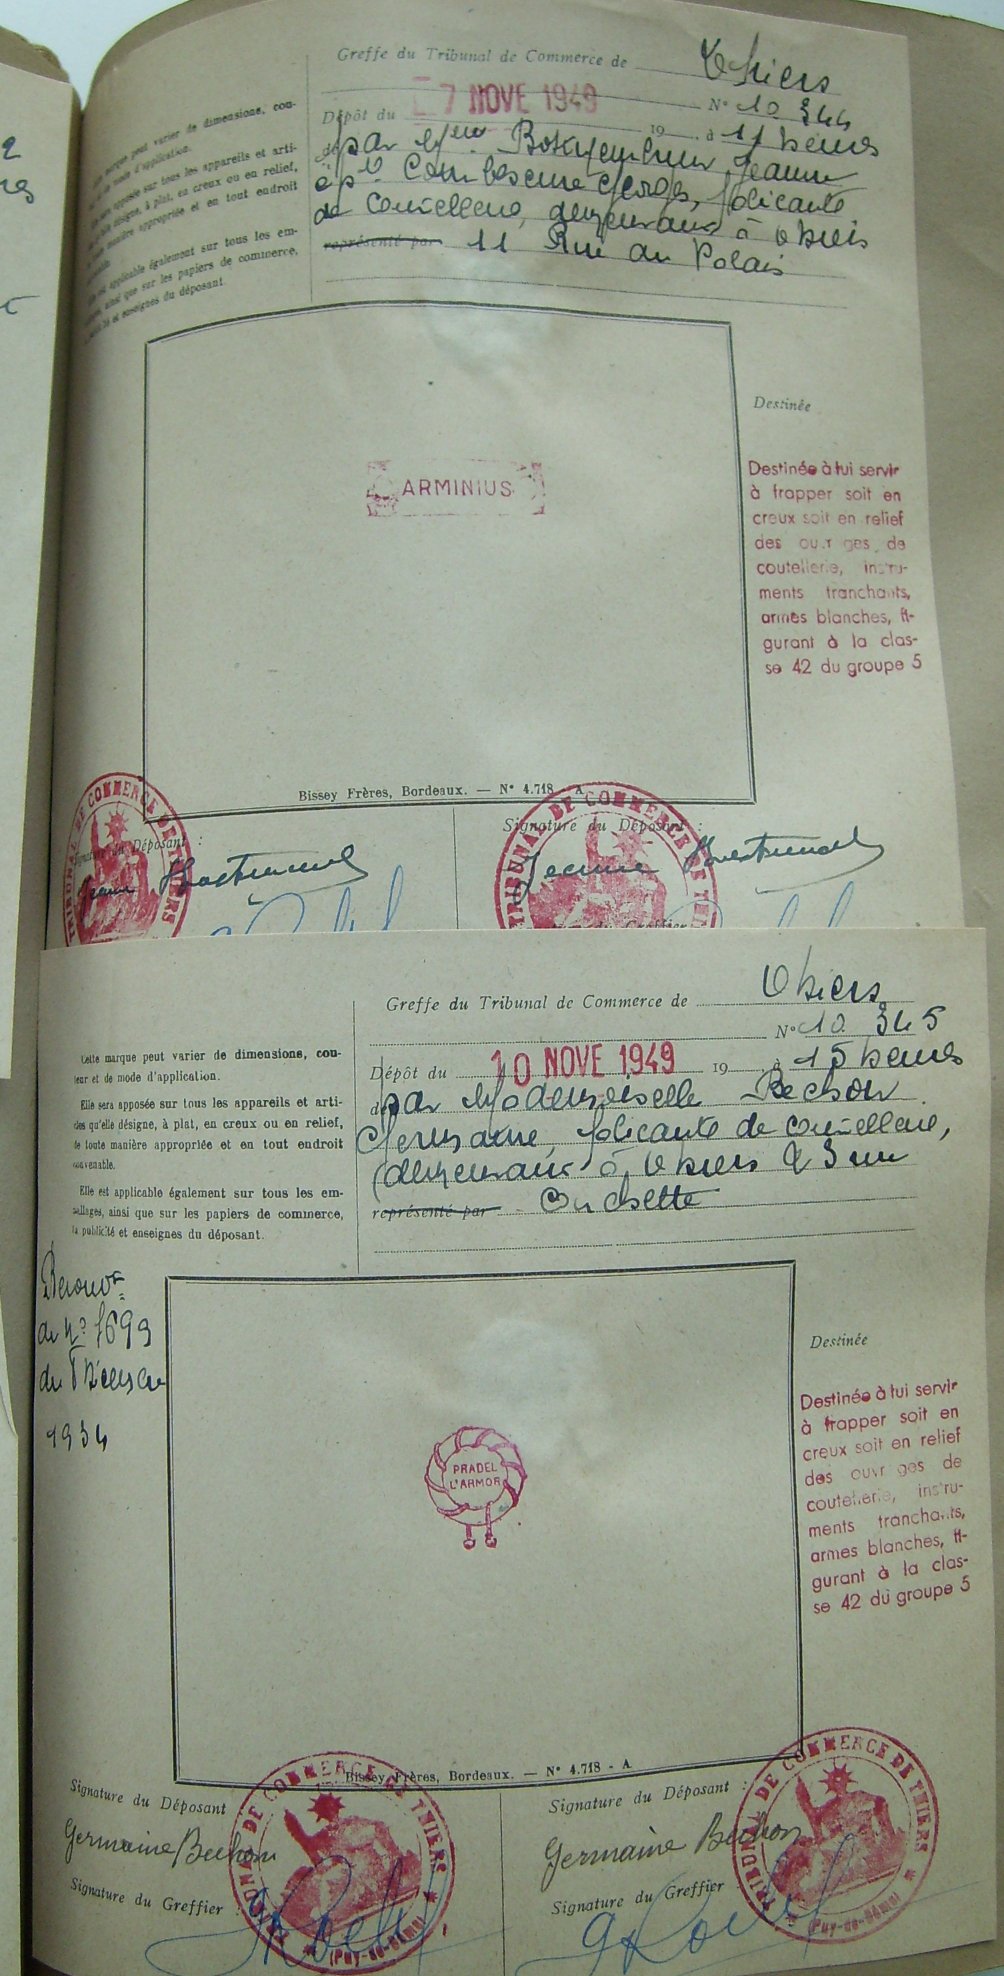 Greffe du Tribunal de Commerce de Thiers
N° 10 344
Dépôt du 7 NOVE 1949 19 à 11 heures
par Jeanne
ép. Combescure Georges, fabricante
de coutellerie, demeurant à Thiers
représenté par 11 Rue du Palais
peut varier de dimensions, cou-
mode d'application.
apposée sur tous les appareils et arti-
désigne, à plat, en creux ou en relief,
manière appropriée et en tout endroit
applicable également sur tous les em-
ainsi que sur les papiers de commerce,
et enseignes du déposant.
ARMINIUS
Destinée
Destinée à lui servir
à frapper soit en
creux soit en relief
des ouvrages de
coutellerie, instru-
ments tranchants,
armes blanches, fi-
gurant à la clas-
se 42 du groupe 5
Bissey Frères, Bordeaux. — N° 4.718 A
Signature du Déposant :
Signature du Déposant :
Jeanne
Jeanne
TRIBUNAL DE COMMERCE DE THIERS
TRIBUNAL DE COMMERCE DE THI
du Greffier
Greffe du Tribunal de Commerce de Thiers
N° 10 345
Dépôt du 10 NOVE 1949 19 à 15 heures
de par Mademoiselle Bechon
Germaine, fabricante de coutellerie,
demeurant à Thiers 23 rue
représenté par Conchette
Cette marque peut varier de dimensions, cou-
leur et de mode d'application.
Elle sera apposée sur tous les appareils et arti-
cles qu'elle désigne, à plat, en creux ou en relief,
de toute manière appropriée et en tout endroit
convenable.
Elle est applicable également sur tous les em-
ballages, ainsi que sur les papiers de commerce,
la publicité et enseignes du déposant.
de n° 7699
du
1934
PRADEL
L'ARMOR
Destinée
Destinée à lui servir
à frapper soit en
creux soit en relief
des ouvrages de
coutellerie, instru-
ments tranchants,
armes blanches, fi-
gurant à la clas-
se 42 du groupe 5
Bissey Frères, Bordeaux. — N° 4.718 - A
Signature du Déposant
Signature du Déposant :
Germaine Bechon
Germaine Bechon
Signature du Greffier :
Signature du Greffier :
TRIBUNAL DE COMMERCE DE THIERS
(Puy-de-Dôme)
TRIBUNAL DE COMMERCE DE THIERS
(Puy-de-Dôme)